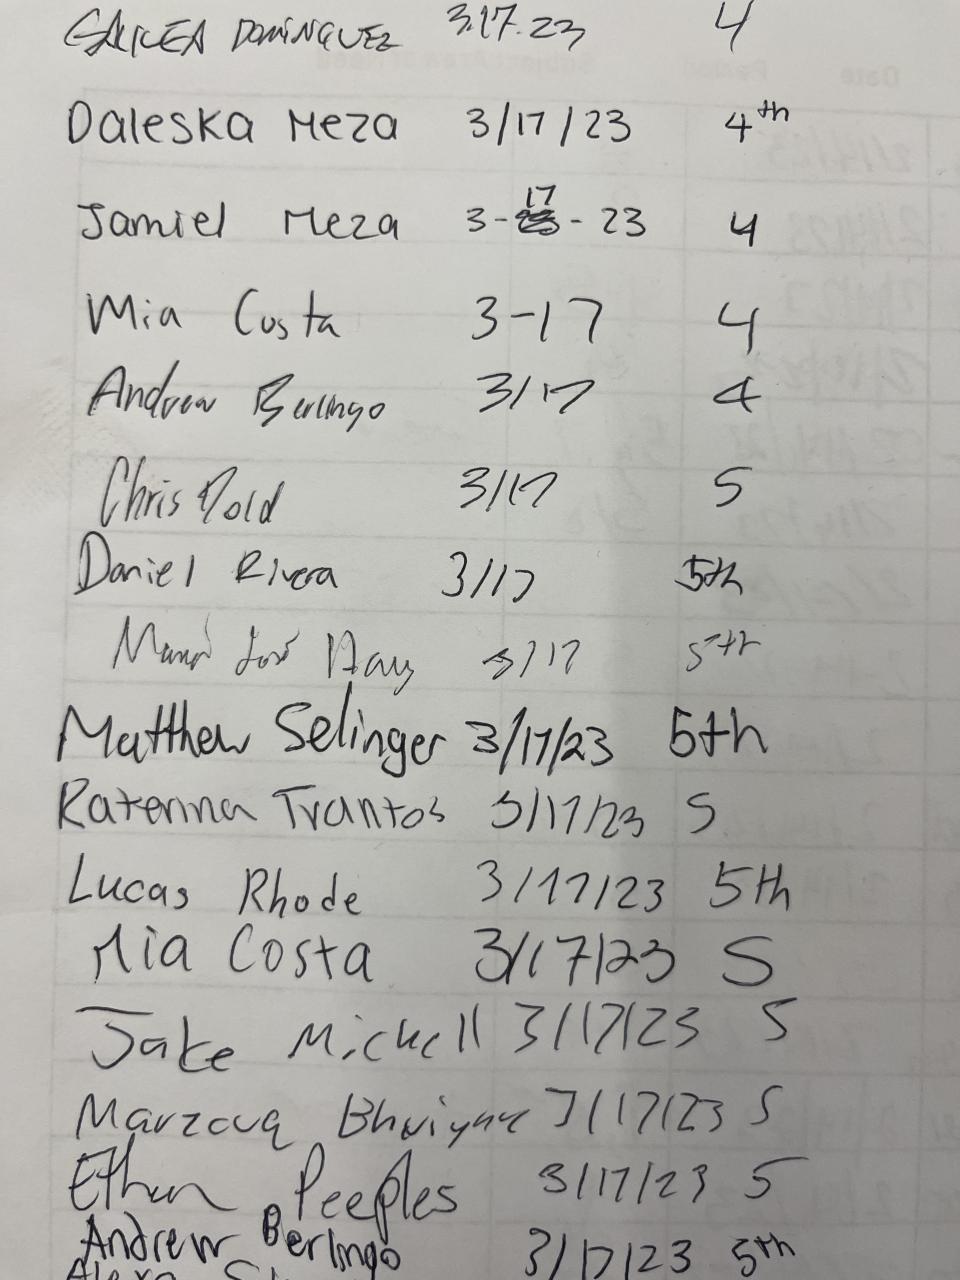 DOMINGUEZ 3.17.23 4
Daleska Meza 3/17/23 4th
Jamiel Meza 3-17-23 4
Mia Costa 3-17 4
Andrew Berlingo 3/17 4
Chris Dold 3/17 5
Daniel Rivera 3/17 5th
3/17 5th
Matthew Selinger 3/17/23 5th
Katerina Trantos 3/17/23 5
Lucas Rhode 3/17/23 5th
Mia Costa 3/17/23 5
Jake Mickell 3/17/23 5
Marzouq Bhuiyan 3/17/23 5
Ethan Peeples 3/17/23 5
Andrew Berlingo 3/17/23 5th